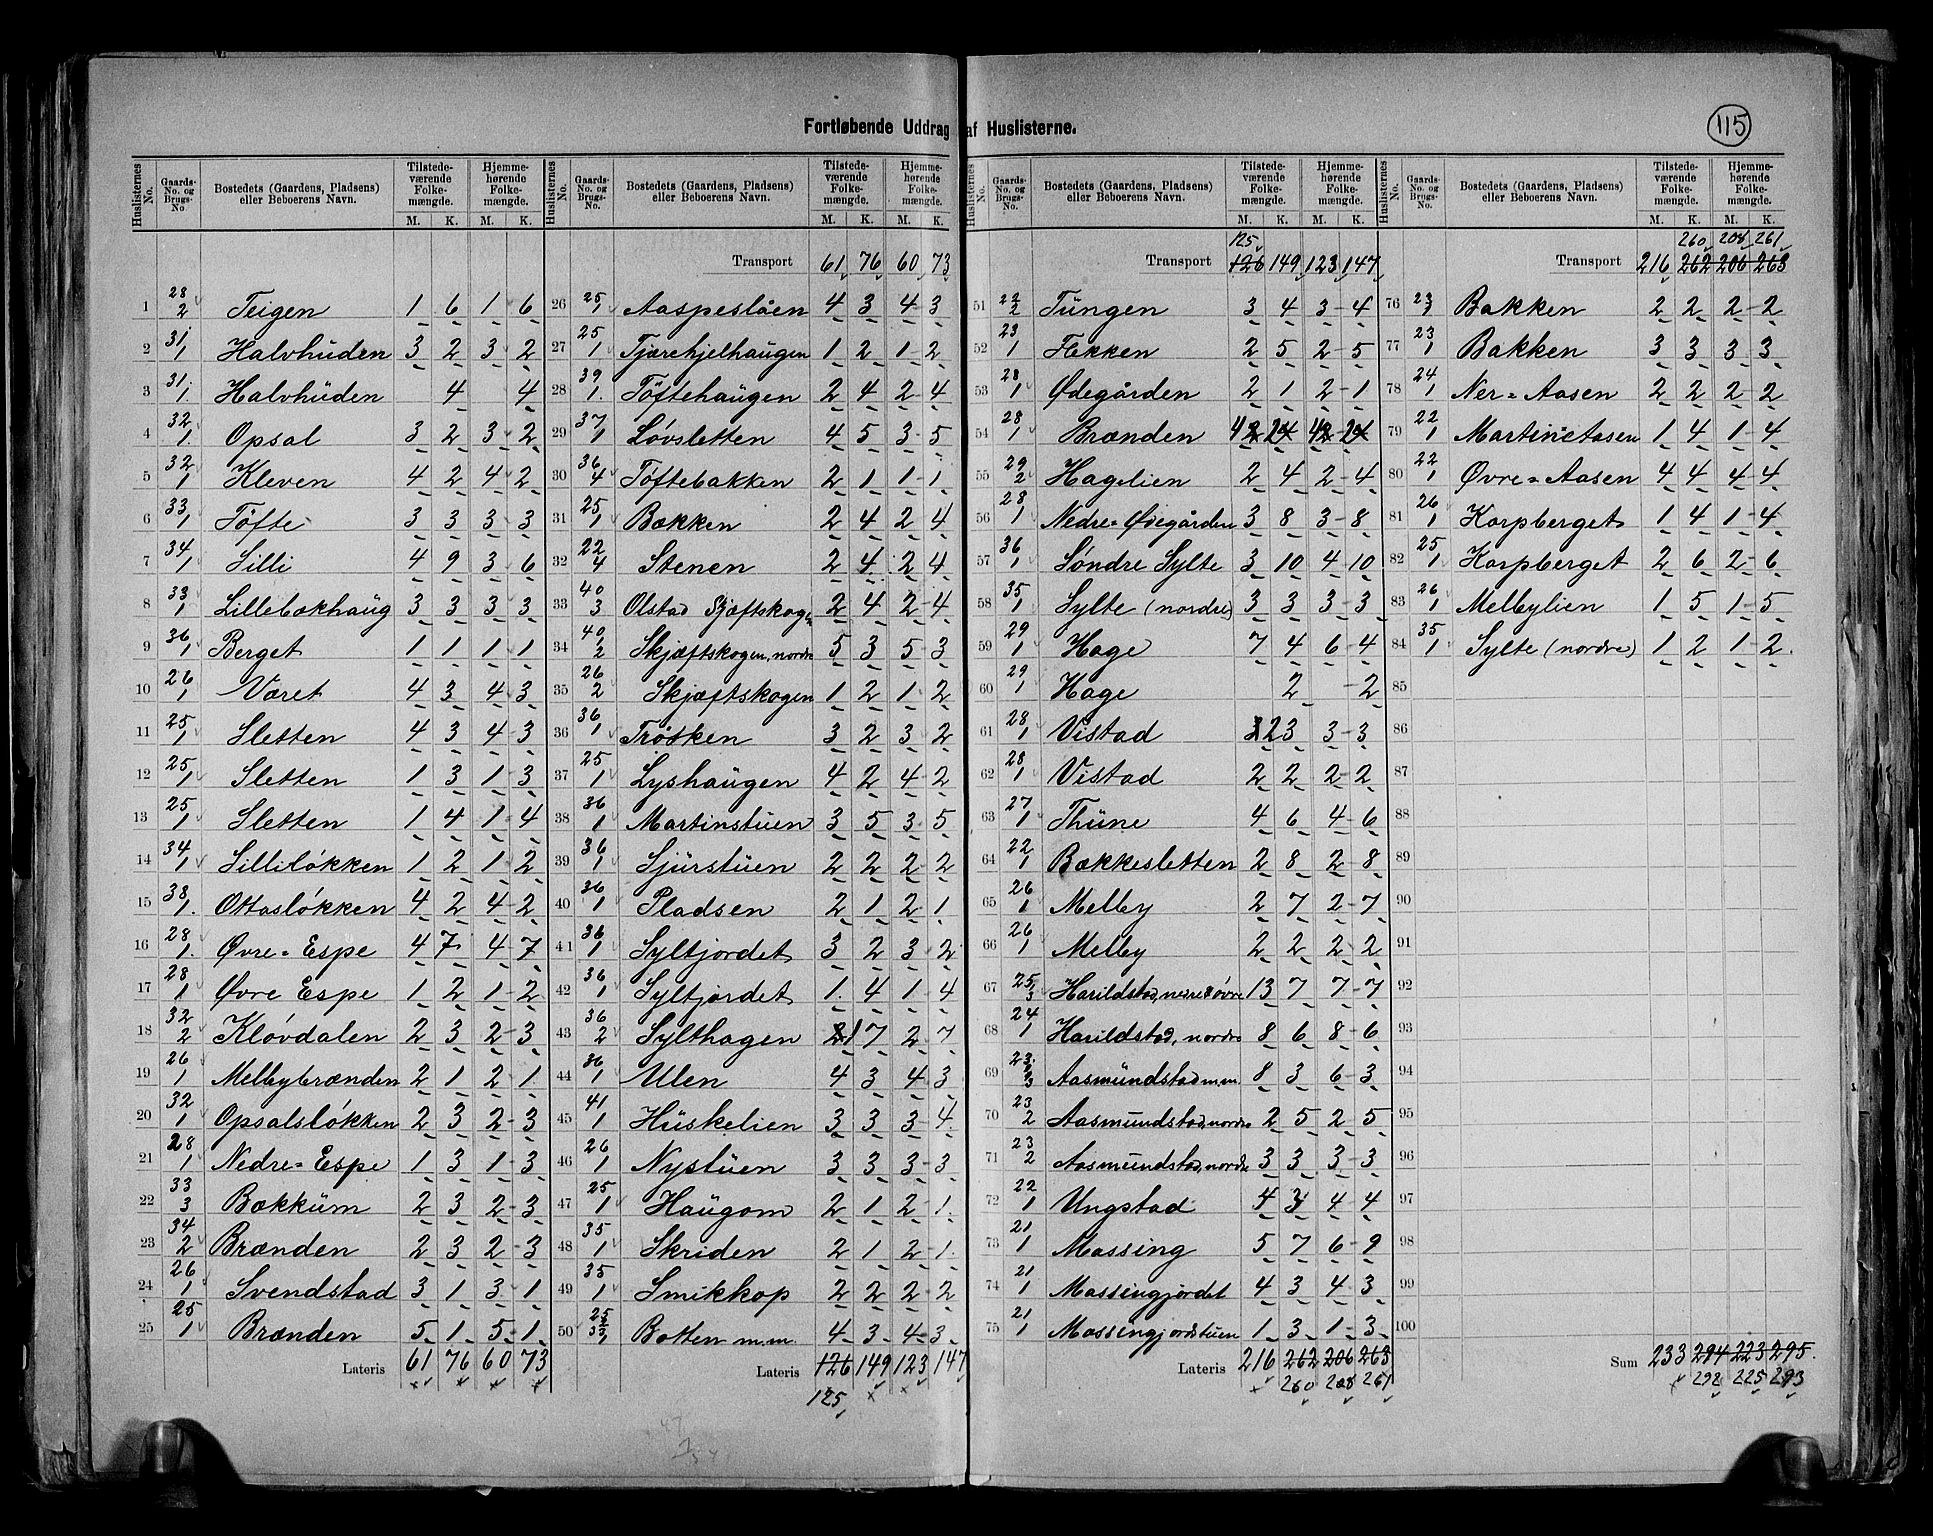 Fortløbende Uddrag af Huslisterne.
115
Huslisternes No. | Gaards-No. og Brugs-No. | Bostedets (Gaardens, Pladsens) eller Beboerens Navn. | Tilstedeværende Folkemængde. M. K. | Hjemmehørende Folkemængde. M. K.
1 28/2 Teigen 1 6 1 6
2 31/1 Halvhuden 3 2 3 2
3 31/1 Halvhuden 4 4
4 32/1 Opsal 3 2 3 2
5 32/1 Kleven 4 2 4 2
6 33/1 Tøfte 3 3 3 3
7 34/1 Lilli 4 9 3 6
8 33/1 Lillebakhaug 3 3 3 3
9 36/1 Berget 1 1 1 1
10 26/1 Været 4 3 4 3
11 25/1 Sletten 4 3 4 3
12 25/1 Sletten 1 3 1 3
13 25/1 Sletten 1 4 1 4
14 34/1 Lilliløkken 1 2 1 2
15 38/1 Ottasløkken 4 2 4 2
16 28/1 Øvre-Espe 4 7 4 7
17 28/1 Øvre Espe 1 2 1 2
18 32/2 Kløvdalen 2 3 2 3
19 26/1 Melbybrænden 2 1 2 1
20 32/1 Opsalsløkken 2 3 2 3
21 28/1 Nedre-Espe 1 3 1 3
22 33/3 Bakkum 2 3 2 3
23 34/2 Brænden 2 3 2 3
24 26/1 Svendstad 3 1 3 1
25 25/1 Brænden 5 1 5 1
Lateris 61 76 60 73
Huslisternes No. | Gaards-No. og Brugs-No. | Bostedets (Gaardens, Pladsens) eller Beboerens Navn. | Tilstedeværende Folkemængde. M. K. | Hjemmehørende Folkemængde. M. K.
Transport 61 76 60 73
26 25/1 Aaspeslåen 4 3 4 3
27 25/1 Tjærehjelhaugen 1 2 1 2
28 39/1 Tøftehaugen 2 4 2 4
29 37/1 Løvsletten 4 5 3 5
30 36/4 Tøftebakken 2 1 1 1
31 25/1 Bækken 2 4 2 4
32 22/4 Stenen 2 4 2 4
33 40/3 Olstad Skjæftskog 2 4 2 4
34 40/2 Skjæftskogen, nordre 5 3 5 3
35 26/2 Skjæftskogen 1 2 1 2
36 36/1 Trøsken 3 2 3 2
37 25/1 Lyshaugen 4 2 4 2
38 36/1 Martinstuen 3 5 3 5
39 36/1 Sjurstuen 2 2 2 2
40 36/1 Pladsen 2 1 2 1
41 36/1 Syltjordet 3 2 3 2
42 36/1 Syltjordet 1 4 1 4
43 36/2 Sylthagen 1 7 2 7
44 36/1 Ulen 4 3 4 3
45 41/1 Huskelien 3 3 3 4
46 26/1 Nystuen 3 3 3 3
47 25/1 Haugom 2 1 2 1
48 35/1 Skriden 2 1 2 1
49 35/1 Smikkop 2 2 2 2
50 Botten m.m. 4 3 4 3
Lateris 126 149 123 147
125
Huslisternes No. | Gaards-No. og Brugs-No. | Bostedets (Gaardens, Pladsens) eller Beboerens Navn. | Tilstedeværende Folkemængde. M. K. | Hjemmehørende Folkemængde. M. K.
125
Transport 126 149 123 147
51 22/2 Tungen 3 4 3 4
52 23/1 Flekken 2 5 2 5
53 28/1 Ødegården 2 1 2 1
54 28/1 Brænden 4 2 4 2
55 29/2 Hagelien 2 4 2 4
56 28/1 Nedre-Ødegården 3 8 3 8
57 36/1 Søndre Sylte 3 10 4 10
58 35/1 Sylte (nordre) 3 3 3 3
59 29/1 Hage 7 4 6 4
60 29/1 Hage 2 2
61 28/1 Vistad 2 3 3 3
62 28/1 Vistad 2 2 2 2
63 27/1 Thune 4 6 4 6
64 22/1 Bækkesletten 2 8 2 8
65 26/1 Melby 2 7 2 7
66 26/1 Melby 2 2 2 2
67 25/3 Harildstad, nedre & øvre 13 7 7 7
68 24/1 Harildstad, nordre 8 6 8 6
69 Aasmundstad m.m. 8 3 6 3
70 23/2 Aasmundstad, nordre 2 5 2 5
71 23/2 Aasmundstad, nordre 3 3 3 3
72 22/1 Ungstad 4 3 4 4
73 21/1 Massing 5 7 6 9
74 21/1 Massingjordet 4 3 4 3
75 21/1 Massingjordstuen 1 3 1 3
Lateris 216 262 206 263
260 208 261
Huslisternes No. | Gaards-No. og Brugs-No. | Bostedets (Gaardens, Pladsens) eller Beboerens Navn. | Tilstedeværende Folkemængde. M. K. | Hjemmehørende Folkemængde. M. K.
260 208 261
Transport 216 262 206 263
76 23/1 Bakken 2 2 2 2
77 23/1 Bakken 3 3 3 3
78 24/1 Ner-Aasen 2 2 2 2
79 22/1 Martineaasen 1 4 1 4
80 22/1 Øvre-Aasen 4 4 4 4
81 26/1 Korpberget 1 4 1 4
82 25/1 Korpberget 2 6 2 6
83 26/1 Melbylien 1 5 1 5
84 35/1 Sylte (nordre) 1 2 1 2
85
86
87
88
89
90
91
92
93
94
95
96
97
98
99
100
Sum 233 294 223 295.
292 225 293